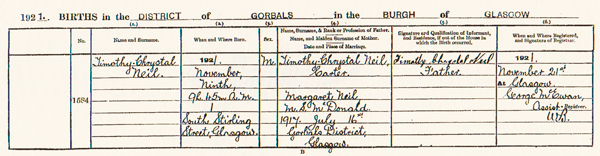 1921. BIRTHS in the DISTRICT of GORBALS in the BURGH of GLASGOW
(1.) (2.) (3.) (4.) (5.) (6.)
No. Name and Surname. When and Where Born. Sex. Name, Surname, & Rank or Profession of Father. Name, and Maiden Surname of Mother. Date and Place of Marriage. Signature and Qualification of Informant, and Residence, if out of the House in which the Birth occurred. When and Where Registered, and Signature of Registrar.
1584
Timothy Chrystal
Neil.
1921.
November,
Ninth,
9h. 45m A.M.
South Stirling
Street, Glasgow.
M.
Timothy Chrystal Neil,
Carter.
Margaret Neil
M.S. McDonald.
1917. July 16th
Gorbals District,
Glasgow.
Timothy Chrystal Neil
Father.
1921.
November 21st
At Glasgow.
George McEwan,
Assist. Registrar.
B